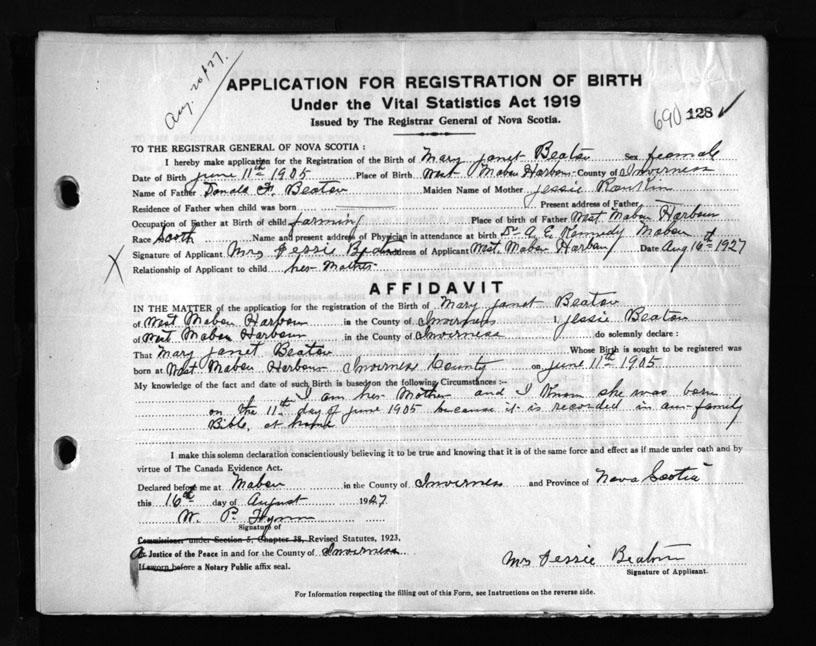 Aug. 20/27.
APPLICATION FOR REGISTRATION OF BIRTH
Under the Vital Statistics Act 1919
Issued by The Registrar General of Nova Scotia.
690 128 ✓
TO THE REGISTRAR GENERAL OF NOVA SCOTIA :
I hereby make application for the Registration of the Birth of Mary Janet Beaton Sex female
Date of Birth June 11th 1905 Place of Birth West Mabou Harbour County of Inverness
Name of Father Donald F. Beaton Maiden Name of Mother Jessie Rankin
Residence of Father when child was born Present address of Father
Occupation of Father at Birth of child farming Place of birth of Father West Mabou Harbour
Race Scotch Name and present address of Physician in attendance at birth Dr. A. E. Kennedy Mabou
X Signature of Applicant Mrs Jessie Beaton Address of Applicant West Mabou Harbour Date Aug 16th 1927
Relationship of Applicant to child her Mother
AFFIDAVIT
IN THE MATTER of the application for the registration of the Birth of Mary Janet Beaton
of West Mabou Harbour in the County of Inverness I, Jessie Beaton
of West Mabou Harbour in the County of Inverness do solemnly declare :
That Mary Janet Beaton Whose Birth is sought to be registered was
born at West Mabou Harbour Inverness County on June 11th 1905
My knowledge of the fact and date of such Birth is based on the following Circumstances :-
I am her Mother and I Know she was born
on the 11th day of June 1905 because it is recorded in our family
Bible, at home
I make this solemn declaration conscientiously believing it to be true and knowing that it is of the same force and effect as if made under oath and by
virtue of The Canada Evidence Act.
Declared before me at Mabou in the County of Inverness and Province of Nova Scotia
this 16th day of August 1927
W. P.
Signature of
Commissioner under Section 5, Chapter 38, Revised Statutes, 1923,
A Justice of the Peace in and for the County of Inverness
If sworn before a Notary Public affix seal.
Mrs Jessie Beaton
Signature of Applicant.
For Information respecting the filling out of this Form, see Instructions on the reverse side.